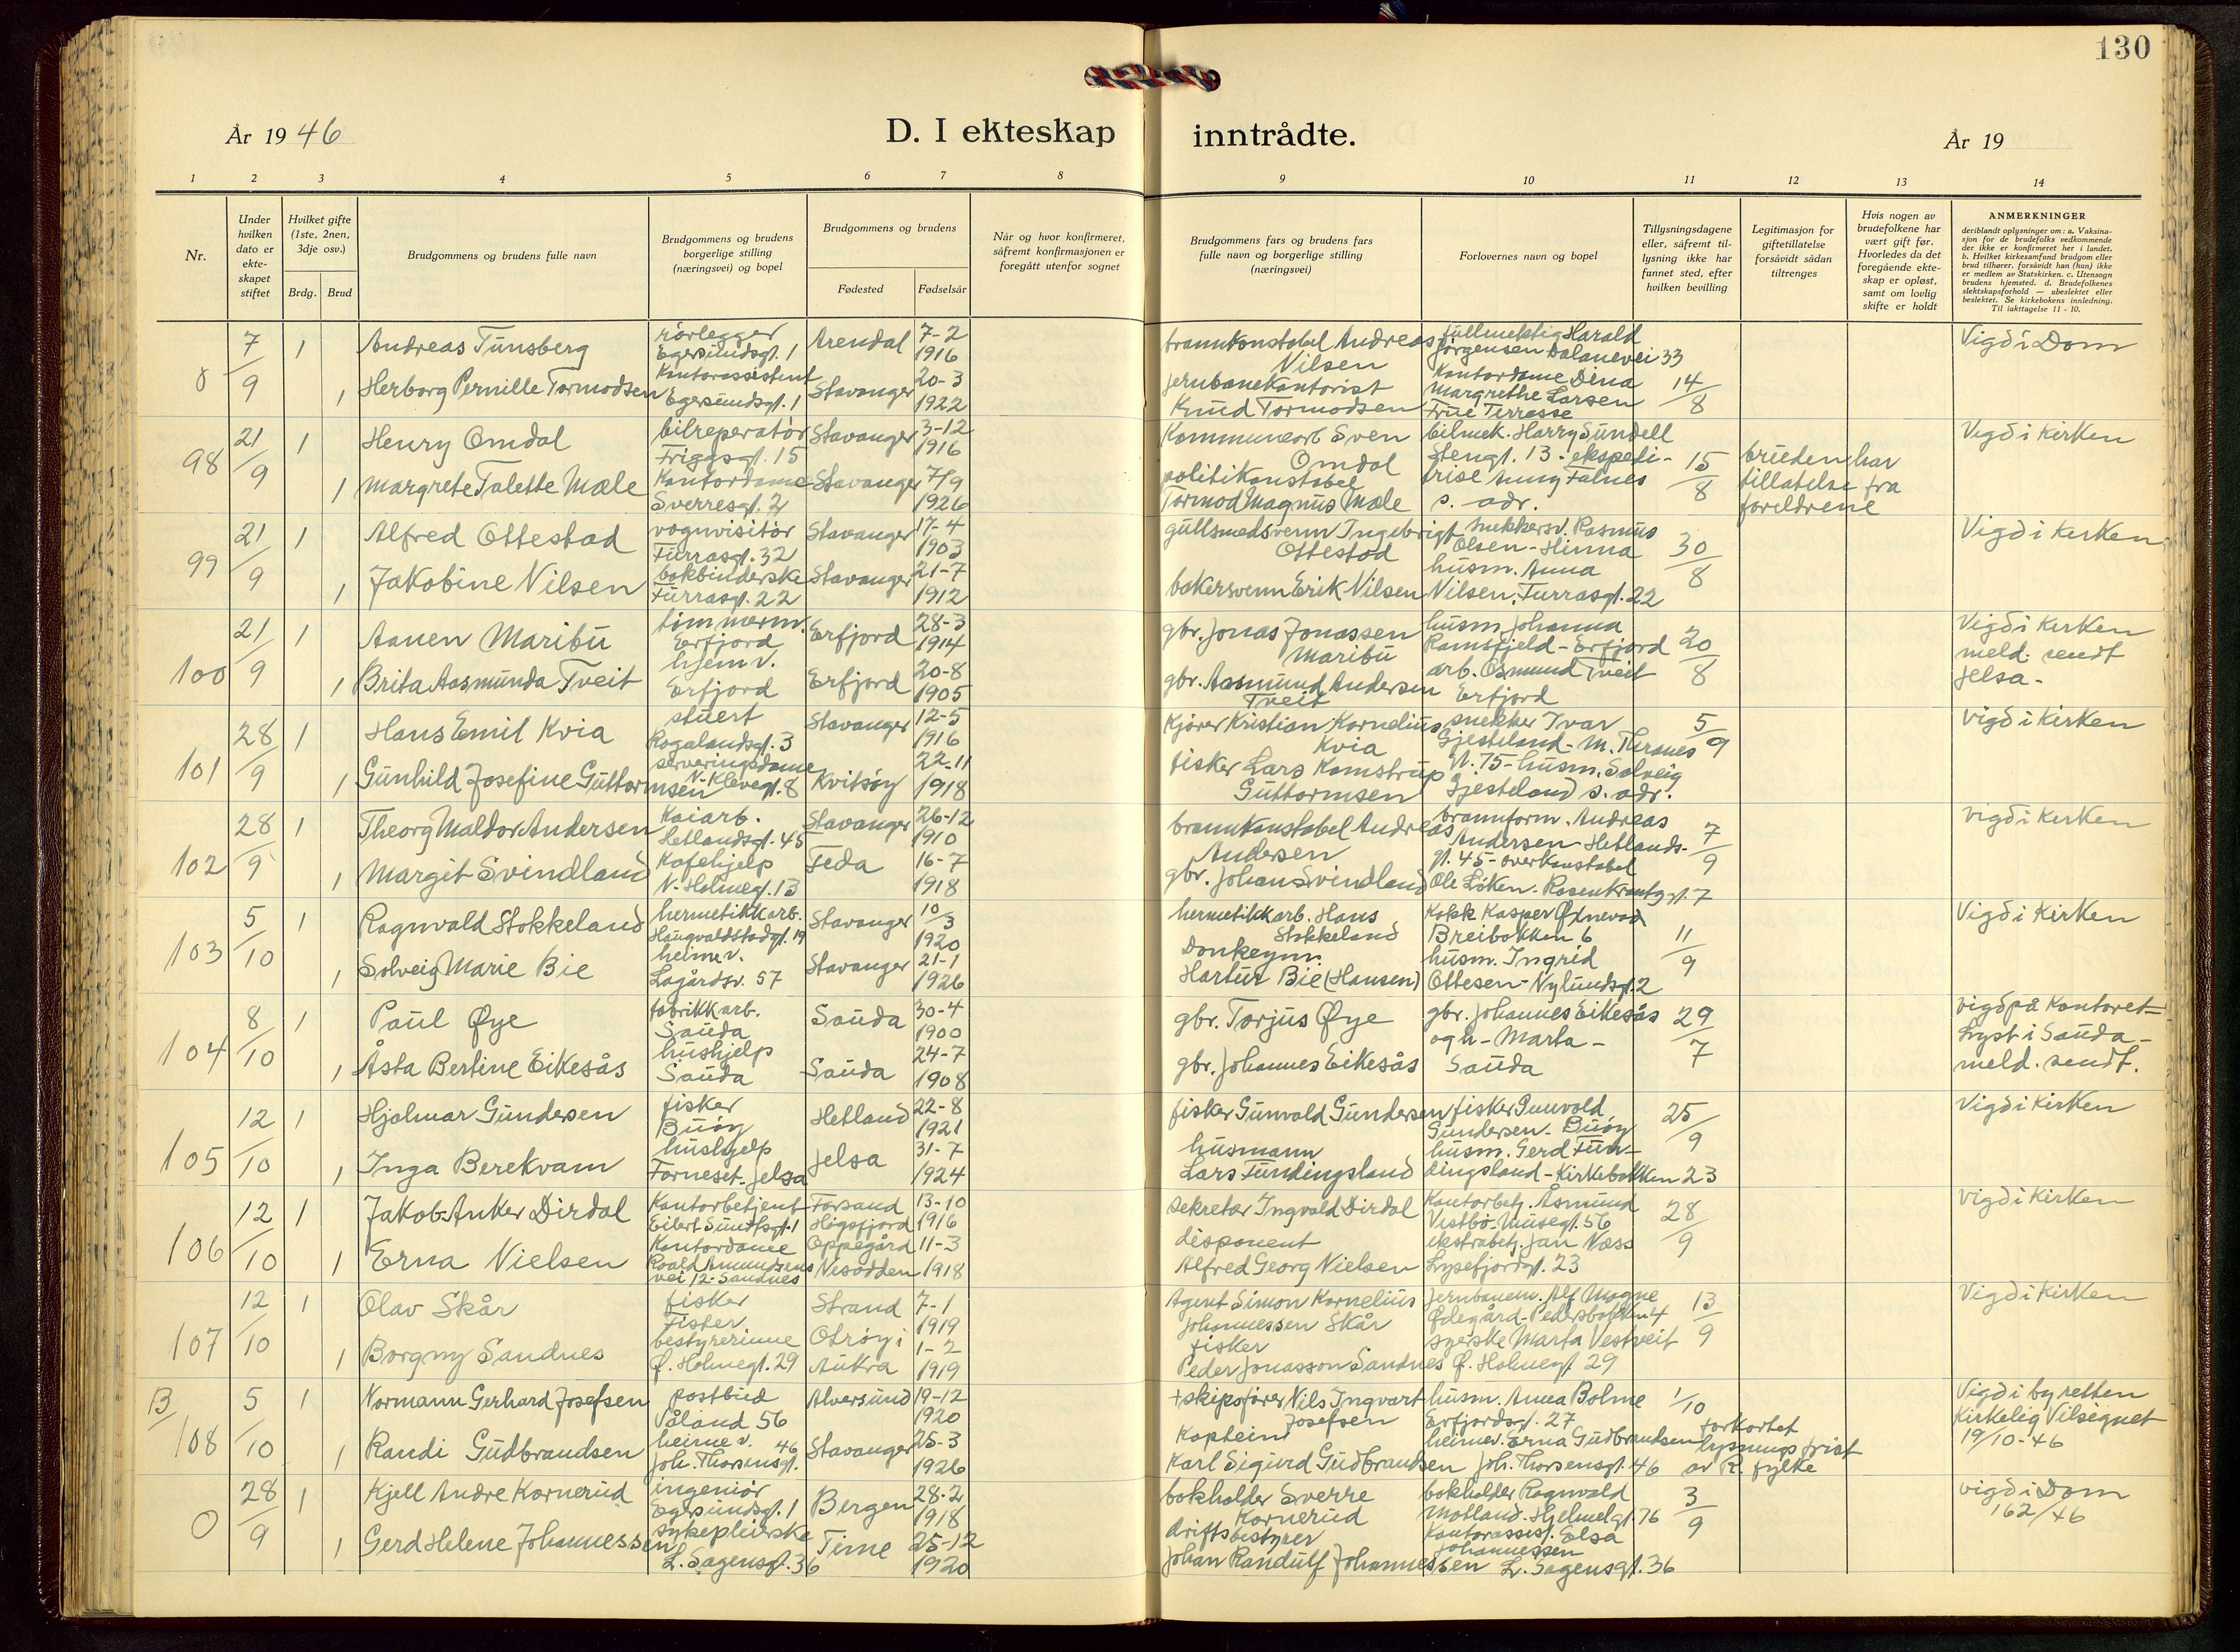 130
År 19 46
D. I ekteskap inntrådte.
År 19
1 2 3 4 5 6 7 8 9 10 11 12 13 14
Nr.
Under hvilken dato er ekteskapet stiftet
Hvilket gifte (1ste, 2nen, 3dje osv.)
Brdg. Brud
Brudgommens og brudens fulle navn
Brudgommens og brudens borgerlige stilling (næringsvei) og bopel
Brudgommens og brudens
Fødested Fødselsår
Når og hvor konfirmeret, såfremt konfirmasjonen er foregått utenfor sognet
Brudgommens fars og brudens fars fulle navn og borgerlige stilling (næringsvei)
Forlovernes navn og bopel
Tillysningsdagene eller, såfremt tillysning ikke har funnet sted, efter hvilken bevilling
Legitimasjon for giftetillatelse forsåvidt sådan tiltrenges
Hvis nogen av brudefolkene har vært gift før. Hvorledes da det foregående ekteskap er opløst, samt om lovlig skifte er holdt
ANMERKNINGER
deriblandt oplysninger om: a. Vaksinasjon for de brudefolks vedkommende der ikke er konfirmeret her i landet. b. Hvilket kirkesamfund brudgom eller brud tilhører, forsåvidt han (hun) ikke er medlem av Statskirken. c. Utensogn brudens hjemsted. d. Brudefolkenes slektskapsforhold — ubeslektet eller beslektet. Se kirkebokens innledning. Til iakttagelse 11 - 10.
0 7/9 1 Andreas Tunsberg rörlegger Egersundsgt. 1 Arendal 7-2 1916 brannkonstabel Andreas Nilsen fullmektig Harald Jörgensen Dalanevei 33 14/8 Vigd i Dom
1 Herborg Pernille Tormodsen Kontorassistent Egersundsgt. 1 Stavanger 20-3 1922 jernbanekontorist Knud Tormodsen Kontordame Dina Margrethe Larsen Frue Terrasse
98 21/9 1 Henry Omdal bilreperatör Friggsgt. 15 Stavanger 3-12 1916 Kommunearb Sven Omdal bilmek. Harry Sundell Stengt. 13 - ekspedi- 15/8 bruden har tillatelse fra foreldrene Vigd i Kirken
1 Margrete Talette Mæle Kontordame Sverresgt. 2 Stavanger 7/9 1926 politikonstabel Tormod Magnus Mæle trise Anny Falnes s. adr.
99 21/9 1 Alfred Ottestad vognvisitör Furrasgt. 32 Stavanger 17-4 1903 gullsmedsvenn Ingebrigt Ottestad snekkersv. Rasmus Olsen - Hinna 30/8 Vigd i Kirken
1 Jakobine Nilsen bokbinderske Furrasgt. 22 Stavanger 21-7 1912 bakersvenn Erik Nilsen husm. Anna Nilsen, Furrasgt. 22
100 21/9 1 Aanen Maribu tömmerm. Erfjord Erfjord 28-3 1914 gbr. Jonas Jonassen Maribu husm Johanna Ramsfjeld - Erfjord 20/8 Vigd i Kirken meld. sendt Jelsa -
1 Brita Aasmunda Tveit hjemv. Erfjord Erfjord 20-8 1905 gbr. Aasmund Andersen Tveit arb. Osmund Tveit Erfjord
101 28/9 1 Hans Emil Kvia stuert Rogalandsgt. 3 Stavanger 12-5 1916 Kjører Kristian Kornelius Kvia snekker Ivar Gjesteland - M. Thranes 5/9 vigd i Kirken
1 Gunhild Josefine Guttormsen serveringsdame N. Klevegt. 8 Kvitsöy 22-11 1918 fisker Lars Komstrup Guttormsen gt. 75 - husm. Solveig Gjesteland s. adr.
102 28/9 1 Theorg Maldor Andersen Kaiarb. Hetlandsgt. 45 Stavanger 26-12 1910 brannkonstabel Andreas Andersen brannform. Andreas Andersen - Hetlands- 7/9 vigd i Kirken
1 Margit Svindland Kafehjelp N. Holmegt. 13 Feda 16-7 1918 gbr. Johan Svindland gt. 45 - overkonstabel Ole Löken. Rosenkrantzgt. 7
103 5/10 1 Ragnvald Stokkeland hermetikkarb. Haugvaldstadgt. 19 Stavanger 10/3 1920 hermetikkarb. Hans Stokkeland Kokk Kasper Øxnevad Breibakken 6 11/9 Vigd i Kirken
1 Solveig Marie Bie heimev. Lagårdsv. 57 Stavanger 21-1 1926 Donkeym. Hartur Bie (Hansen) husm. Ingrid Ottesen - Nylundsgt. 2
104 8/10 1 Paul Øye fabrikkarb. Sauda Sauda 30-4 1900 gbr. Torjus Øye gbr. Johannes Eikesås 29/7 vigd på Kontoret - Lyst i Sauda - meld. sendt.
1 Åsta Bertine Eikesås hushjelp Sauda Sauda 24-7 1908 gbr. Johannes Eikesås og h - Marta - Sauda
105 12/10 1 Hjalmar Gundersen fisker Buöy Hetland 22-8 1921 fisker Gunvald Gundersen fisker Gunvald Gundersen - Buöy 25/9 Vigd i Kirken
1 Inga Berekvam hushjelp Forneset - Jelsa Jelsa 31-7 1924 husmann Lars Fundingsland husm. Gerd Fundingsland - Kirkebakken 23
106 12/10 1 Jakob Anker Dirdal Kontorbetjent Eilert Sundtsgt. 1 Forsand Högsfjord 13-10 1916 sekretær Ingvald Dirdal Kontorbetj. Åsmund Vestbö. Musegt. 56 28/9 vigd i Kirken
1 Erna Nielsen Kontordame Roald Amundsens vei 12 - Sandnes Oppegård Nesodden 11-3 1918 disponent Alfred Georg Nielsen ekstrabetj. Jan Næss Lysefjordgt. 23
107 12/10 1 Olav Skår fisker Strand 7-1 1919 Agent Simon Kornelius Johannessen Skår Jernbanem. Alf Magne Ødegård - Pedersbakken 4 13/9 Vigd i Kirken
1 Borgny Sandnes bestyrerinne Ø. Holmegt. 29 Otröy i Aukra 1-2 1919 fisker Peder Jonasson Sandnes syerske Marta Vestveit Ø. Holmegt 29
B/108 5/10 1 Normann Gerhard Josefsen postbud Våland 56 Alversund 19-12 1920 +skipsförer Nils Ingvart Josefsen husm. Anna Bolme Erfjordsgt. 27 1/10 forkortet lysningsfrist av R. fylke Vigd i byretten Kirkelig Vilsignet 19/10-46
1 Randi Gudbrandsen heimev. Joh. Thorsensgt. 46 Stavanger 25-3 1926 Kaptein Karl Sigurd Gudbrandsen heimev. Erna Gudbrandsen Joh. Thorsensgt. 46
0 28/9 1 Kjell Andre Kornerud ingeniör Egersundsgt. 1 Bergen 28-2 1918 bokholder Sverre Kornerud bokholder Ragnvald Motland. Hjelmelgt. 76 3/9 vigd i Dom 162/46
1 Gerd Helene Johannessen sykepleierske L. Sagensgt. 36 Time 25-12 1920 driftsbestyrer Johan Randulf Johannessen Kontorassist. Elsa Johannessen L. Sagensgt. 36